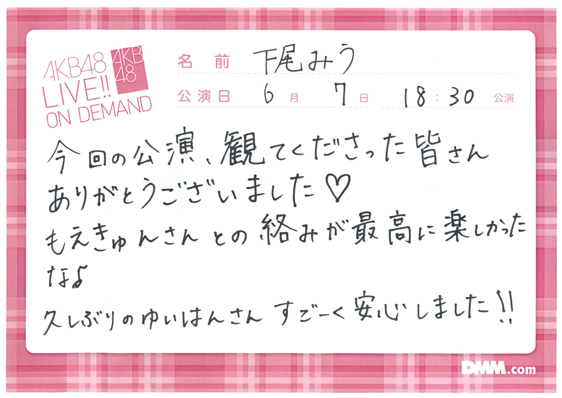 AKB48
LIVE!!
ON DEMAND
AKB
48
名前 下尾みう
公演日 6月 7日 18:30 公演
今回の公演、観てくださった皆さん
ありがとうございました♡
もえきゅんさんとの絡みが最高に楽しかった
なよ
久しぶりのゆいはんさん すごーく安心しました!!
DMM.com